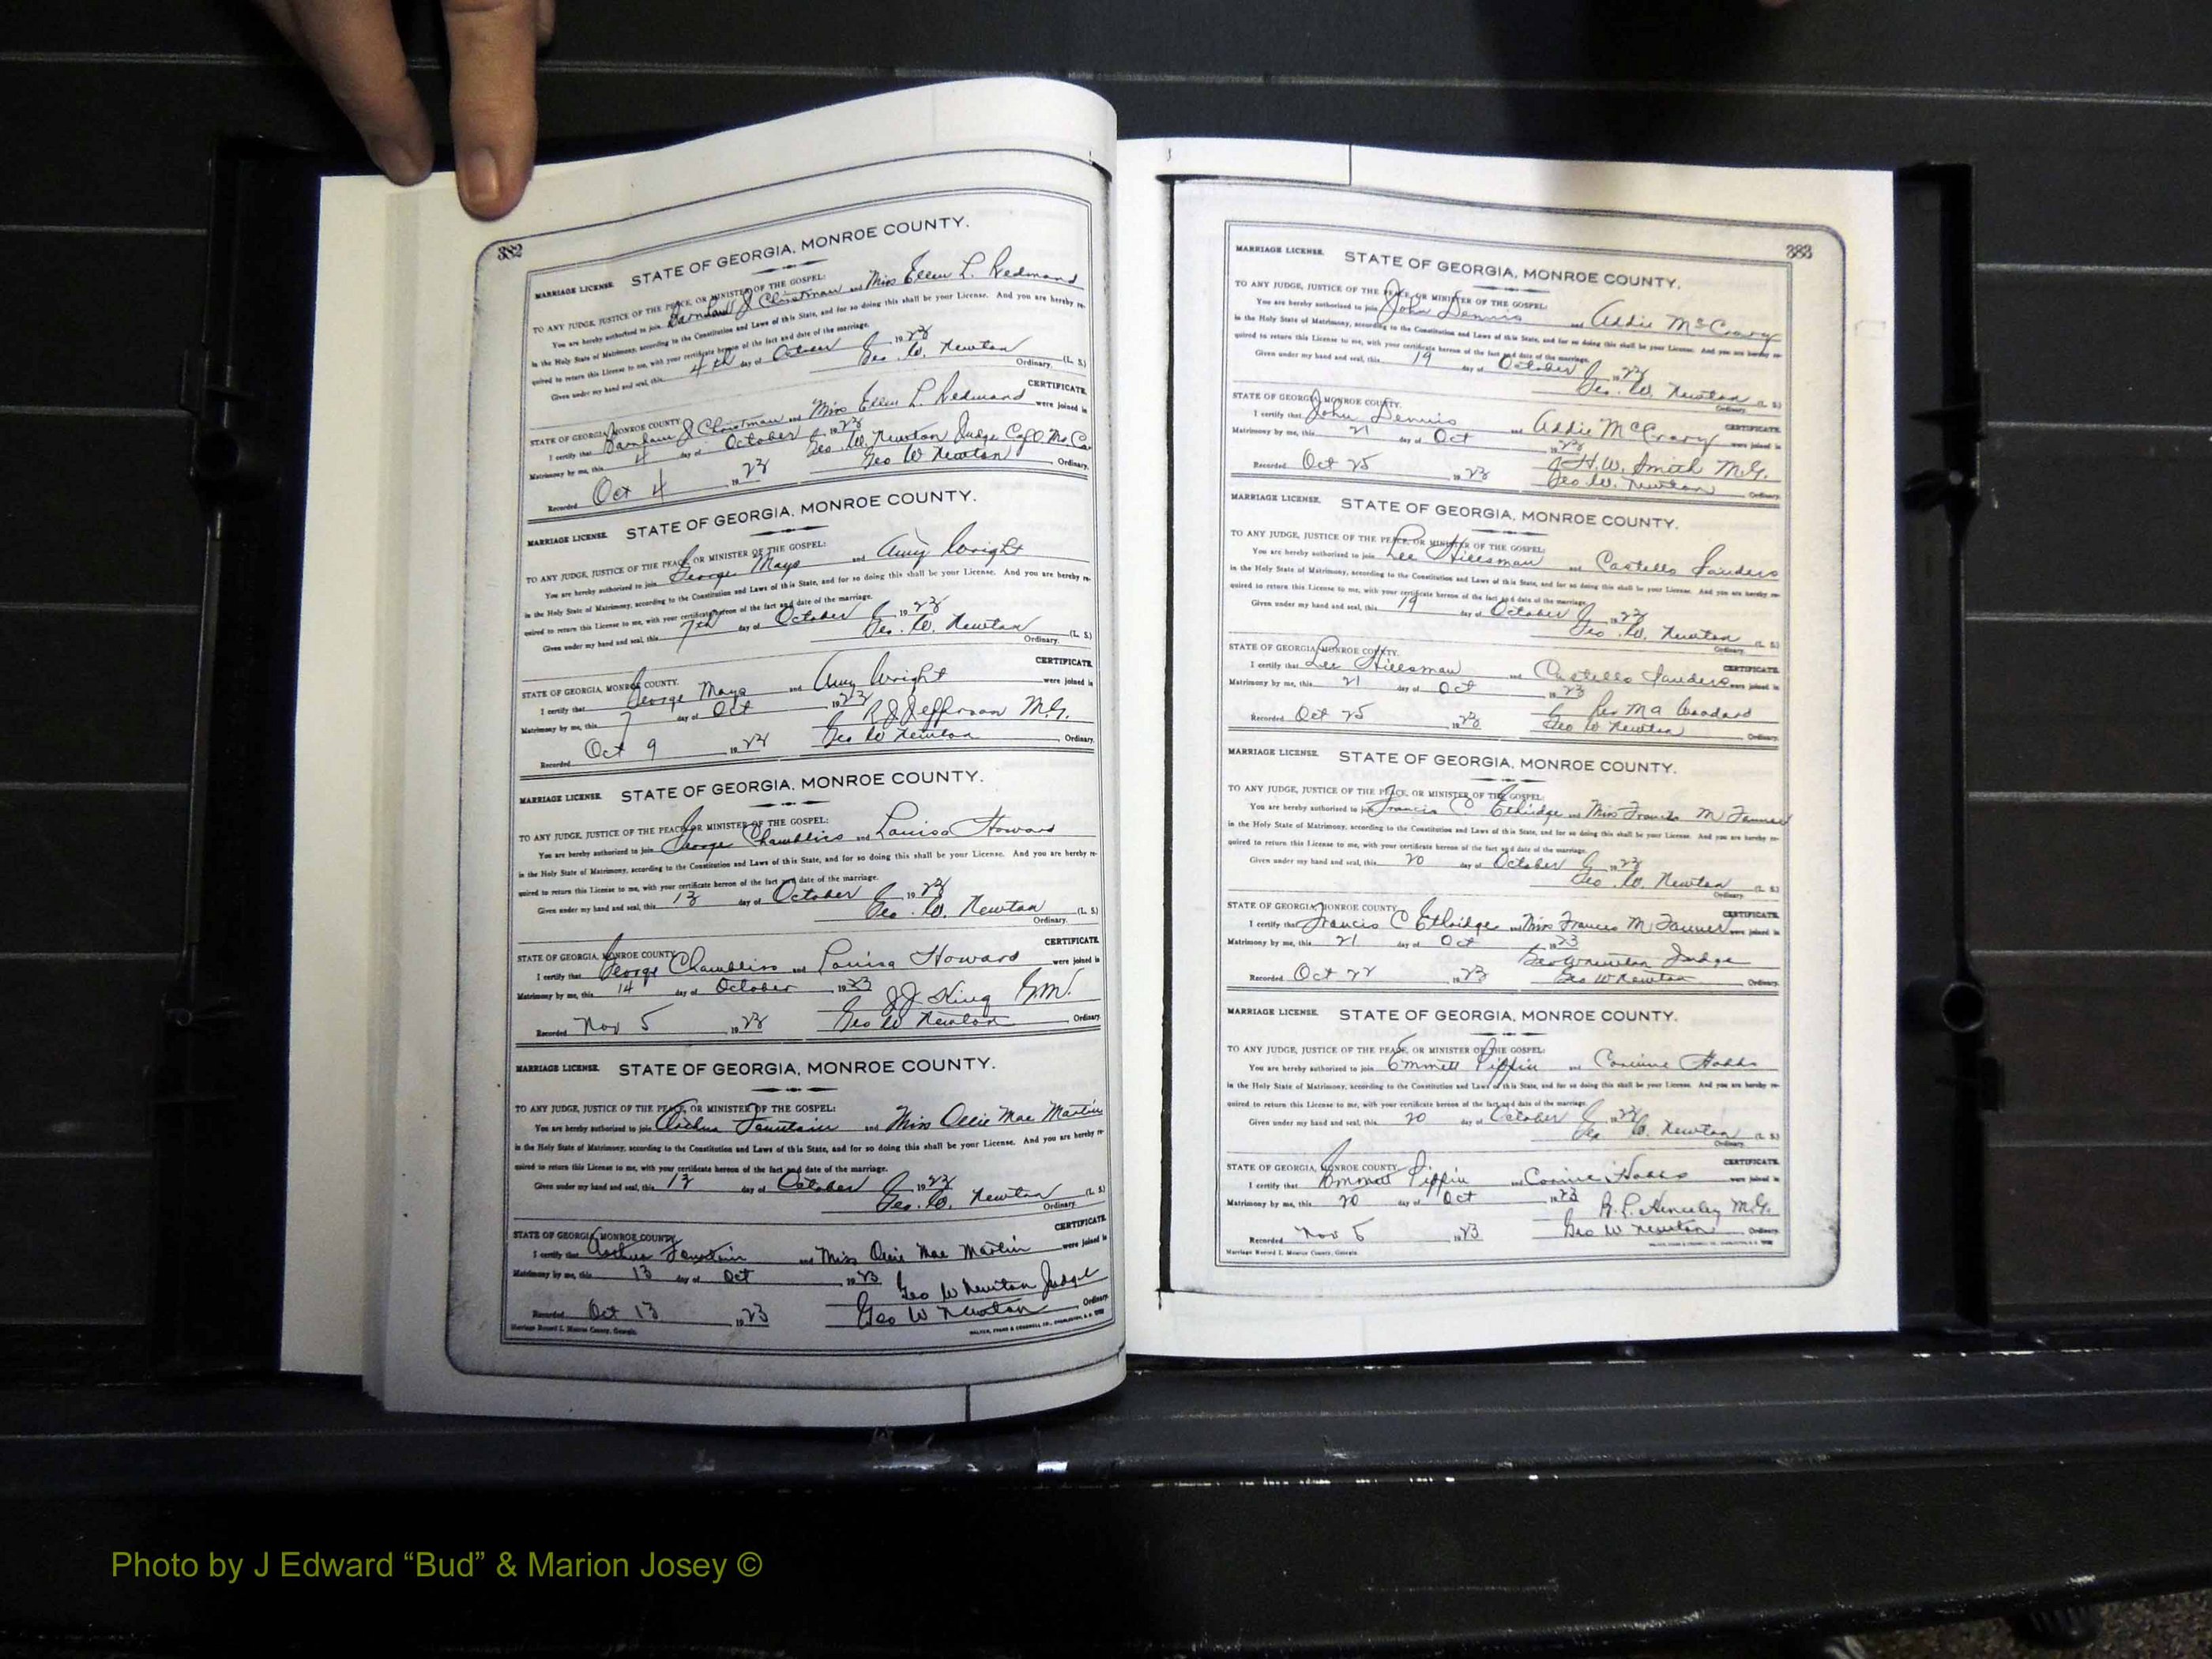 382
STATE OF GEORGIA, MONROE COUNTY.
MARRIAGE LICENSE.
TO ANY JUDGE, JUSTICE OF THE PEACE, OR MINISTER OF THE GOSPEL:
You are hereby authorized to join J Christman and Miss Ellen L. Redmond
in the Holy State of Matrimony, according to the Constitution and Laws of this State, and for so doing this shall be your License. And you are hereby re-
quired to return this License to me, with your certificate hereon of the fact and date of the marriage.
Given under my hand and seal, this 4th day of October 1923
Geo. W. Newton (L. S.)
Ordinary.
CERTIFICATE.
STATE OF GEORGIA, MONROE COUNTY.
I certify that J Christman and Miss Ellen L. Redmond were joined in
Matrimony by me, this 4 day of October 1923
Geo. W. Newton Judge C of O Mo Co.
Recorded Oct 4 1923 Geo W Newton Ordinary.
MARRIAGE LICENSE. STATE OF GEORGIA, MONROE COUNTY.
TO ANY JUDGE, JUSTICE OF THE PEACE, OR MINISTER OF THE GOSPEL:
You are hereby authorized to join George Mays and Amy Wright
in the Holy State of Matrimony, according to the Constitution and Laws of this State, and for so doing this shall be your License. And you are hereby re-
quired to return this License to me, with your certificate hereon of the fact and date of the marriage.
Given under my hand and seal, this 7th day of October 1923
Geo. W. Newton (L. S.)
Ordinary.
CERTIFICATE.
STATE OF GEORGIA, MONROE COUNTY.
I certify that George Mays and Amy Wright were joined in
Matrimony by me, this 7 day of Oct 1923
R J Jefferson M.G.
Recorded Oct 9 19 Geo W Newton Ordinary.
MARRIAGE LICENSE. STATE OF GEORGIA, MONROE COUNTY.
TO ANY JUDGE, JUSTICE OF THE PEACE, OR MINISTER OF THE GOSPEL:
You are hereby authorized to join George Chambliss and Louisa Howard
in the Holy State of Matrimony, according to the Constitution and Laws of this State, and for so doing this shall be your License. And you are hereby re-
quired to return this License to me, with your certificate hereon of the fact and date of the marriage.
Given under my hand and seal, this 13 day of October 1923
Geo. W. Newton (L. S.)
Ordinary.
CERTIFICATE.
STATE OF GEORGIA, MONROE COUNTY.
I certify that George Chambliss and Louisa Howard were joined in
Matrimony by me, this 14 day of October 1923
J J King G.M.
Recorded Nov 5 1923 Geo W Newton Ordinary.
MARRIAGE LICENSE. STATE OF GEORGIA, MONROE COUNTY.
TO ANY JUDGE, JUSTICE OF THE PEACE, OR MINISTER OF THE GOSPEL:
You are hereby authorized to join Fountain and Miss Ollie Mae Martin
in the Holy State of Matrimony, according to the Constitution and Laws of this State, and for so doing this shall be your License. And you are hereby re-
quired to return this License to me, with your certificate hereon of the fact and date of the marriage.
Given under my hand and seal, this 13 day of October 1923
Geo. W. Newton (L. S.)
Ordinary.
CERTIFICATE.
STATE OF GEORGIA, MONROE COUNTY.
I certify that Fountain and Miss Ollie Mae Martin were joined in
Matrimony by me, this 13 day of Oct 1923
Geo W Newton Judge
Recorded Oct 13 1923 Geo W Newton Ordinary.
Marriage Record I. Monroe County, Georgia. WALKER, EVANS & COGSWELL CO., CHARLESTON, S. C.
383
MARRIAGE LICENSE. STATE OF GEORGIA, MONROE COUNTY.
TO ANY JUDGE, JUSTICE OF THE PEACE, OR MINISTER OF THE GOSPEL:
You are hereby authorized to join John Dennis and Addie McCrary
in the Holy State of Matrimony, according to the Constitution and Laws of this State, and for so doing this shall be your License. And you are hereby re-
quired to return this License to me, with your certificate hereon of the fact and date of the marriage.
Given under my hand and seal, this 19 day of October 1923
Geo. W. Newton (L. S.)
Ordinary.
STATE OF GEORGIA, MONROE COUNTY. CERTIFICATE.
I certify that John Dennis and Addie McCrary were joined in
Matrimony by me, this 21 day of Oct 1923
H. W. Smith M.G.
Recorded Oct 25 1923 Geo. W. Newton Ordinary.
MARRIAGE LICENSE. STATE OF GEORGIA, MONROE COUNTY.
TO ANY JUDGE, JUSTICE OF THE PEACE, OR MINISTER OF THE GOSPEL:
You are hereby authorized to join Lee Hillsman and Castello Sanders
in the Holy State of Matrimony, according to the Constitution and Laws of this State, and for so doing this shall be your License. And you are hereby re-
quired to return this License to me, with your certificate hereon of the fact and date of the marriage.
Given under my hand and seal, this 19 day of October 1923
Geo. W. Newton (L. S.)
Ordinary.
STATE OF GEORGIA, MONROE COUNTY. CERTIFICATE.
I certify that Lee Hillsman and Castello Sanders were joined in
Matrimony by me, this 21 day of Oct 1923
Rev M A Woodard
Recorded Oct 25 1923 Geo W Newton Ordinary.
MARRIAGE LICENSE. STATE OF GEORGIA, MONROE COUNTY.
TO ANY JUDGE, JUSTICE OF THE PEACE, OR MINISTER OF THE GOSPEL:
You are hereby authorized to join Francis C. Ethridge and Miss Frances M Tanner
in the Holy State of Matrimony, according to the Constitution and Laws of this State, and for so doing this shall be your License. And you are hereby re-
quired to return this License to me, with your certificate hereon of the fact and date of the marriage.
Given under my hand and seal, this 20 day of October 1923
Geo. W. Newton (L. S.)
Ordinary.
STATE OF GEORGIA, MONROE COUNTY. CERTIFICATE.
I certify that Francis C Ethridge and Miss Frances M Tanner were joined in
Matrimony by me, this 21 day of Oct 1923
Geo W Newton Judge
Recorded Oct 22 1923 Geo W Newton Ordinary.
MARRIAGE LICENSE. STATE OF GEORGIA, MONROE COUNTY.
TO ANY JUDGE, JUSTICE OF THE PEACE, OR MINISTER OF THE GOSPEL:
You are hereby authorized to join Emmett Pippin and Corinne Hobbs
in the Holy State of Matrimony, according to the Constitution and Laws of this State, and for so doing this shall be your License. And you are hereby re-
quired to return this License to me, with your certificate hereon of the fact and date of the marriage.
Given under my hand and seal, this 20 day of October 1923
Geo. W. Newton (L. S.)
Ordinary.
STATE OF GEORGIA, MONROE COUNTY. CERTIFICATE.
I certify that Emmett Pippin and Corine Hobbs were joined in
Matrimony by me, this 20 day of Oct 1923
R. L. M.G.
Recorded Nov 5 1923 Geo W Newton Ordinary.
Marriage Record I. Monroe County, Georgia. WALKER, EVANS & COGSWELL CO., CHARLESTON, S. C.
Photo by J Edward “Bud” & Marion Josey ©